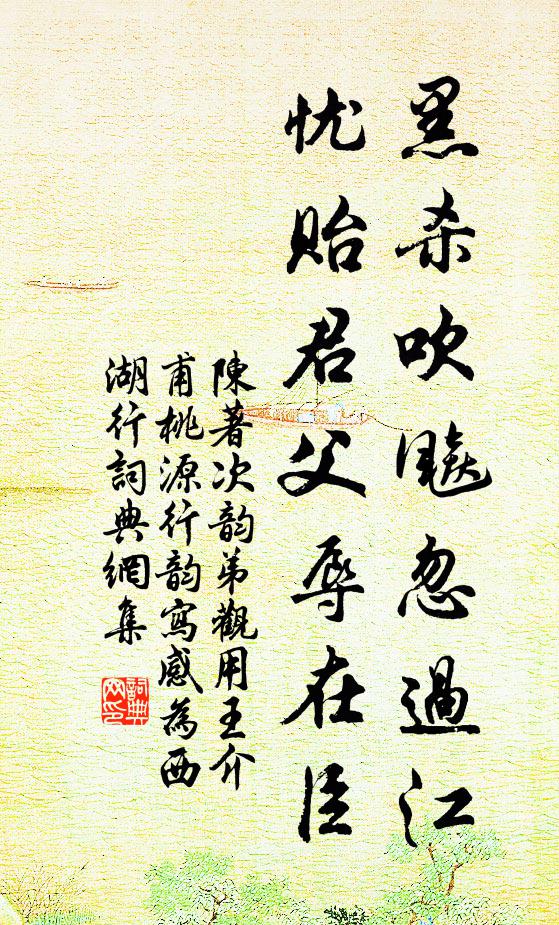 黑杀吹飚忽過江
忧貽君父辱在臣
陳著次韵弟觀用王介
甫桃源行韵寫感為西
湖行詞典網集
詞典网印